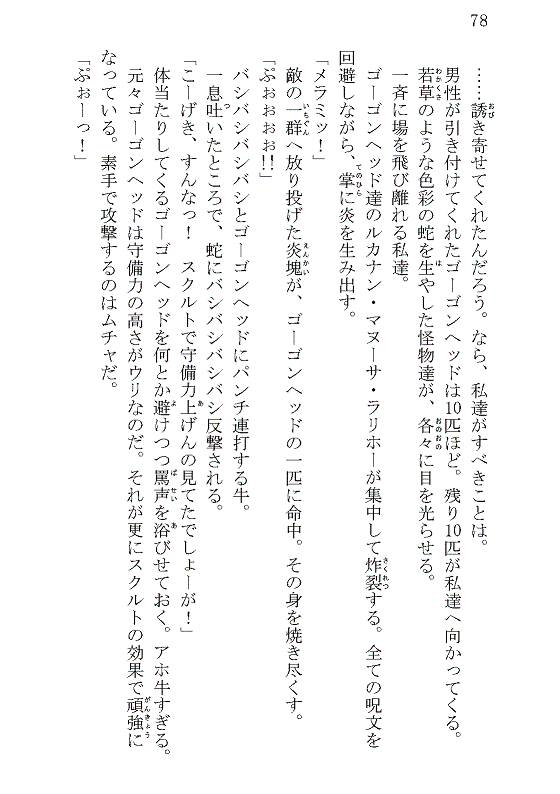 78
……誘き寄せてくれたんだろう。なら、私達がすべきことは。
男性が引き付けてくれたゴーゴンヘッドは10匹ほど。残り10匹が私達へ向かってくる。
若草のような色彩の蛇を生やした怪物達が、各々に目を光らせる。
一斉に場を飛び離れる私達。
ゴーゴンヘッド達のルカナン・マヌーサ・ラリホーが集中して炸裂する。全ての呪文を
回避しながら、掌に炎を生み出す。
「メラミッ！」
敵の一群へ放り投げた炎塊が、ゴーゴンヘッドの一匹に命中。その身を焼き尽くす。
「ぷぉぉぉぉ!!」
バシバシバシバシとゴーゴンヘッドにパンチ連打する牛。
一息吐いたところで、蛇にバシバシバシバシ反撃される。
「こーげき、すんなっ！　スクルトで守備力上げんの見てたでしょーが！」
体当たりしてくるゴーゴンヘッドを何とか避けつつ罵声を浴びせておく。アホ牛すぎる。
元々ゴーゴンヘッドは守備力の高さがウリなのだ。それが更にスクルトの効果で頑強に
なっている。素手で攻撃するのはムチャだ。
「ぷぉーっ！」